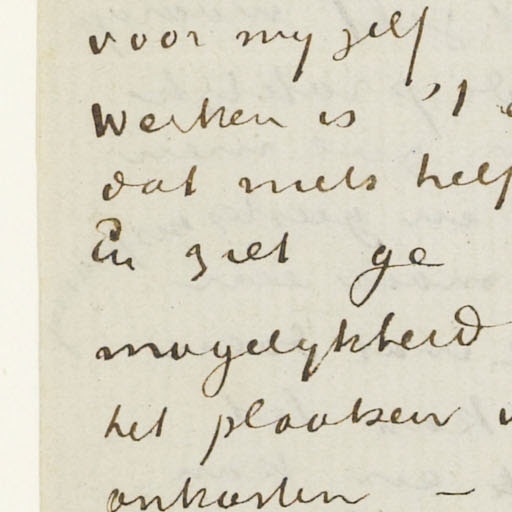 voor my zelf
Werken is 't
dat niets help
En ziet ge
mogelykheid
het plaatsen
onkosten –